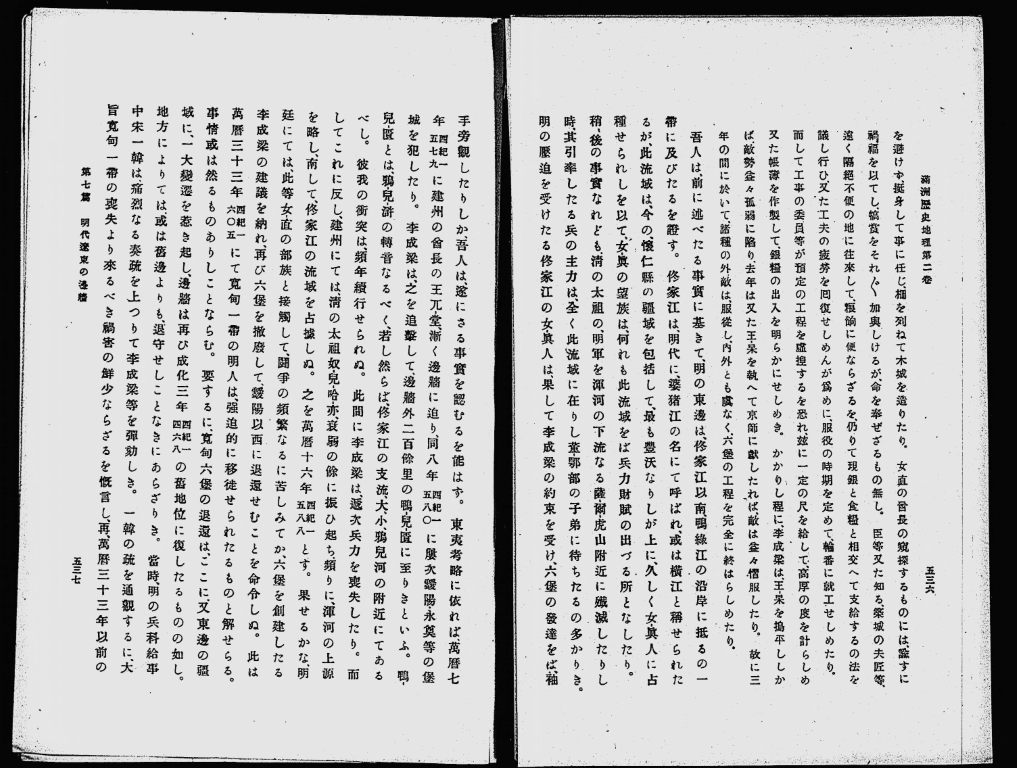 滿洲歷史地理第二卷
五三六
を避けず挺身して事に任じ柵を列ねて木城を造りたり。女直の酋長の窺探するものには諭すに
禍福を以てし、犒賞をそれ〲加與しけるが命を奉ぜざるもの無し。臣等又た知る、築城の夫匠等、
遠く隔絕不便の地に往來して、糧餉に便ならざるを、仍りて現銀と食糧と相交へて支給するの法を
議し行ひ、又た工夫の疲勞を囘復せしめんが爲めに、服役の時期を定めて輪番に就工せしめたり。
而して工事の委員等が預定の工程を虛捏するを恐れ、玆に一定の尺を給して、高厚の度を計らしめ
又た帳簿を作製して、銀糧の出入を明らかにせしめき。かかりし程に、李成梁は、王杲を搗平ししか
ば敵勢益々孤弱に陷り、去年は又た王杲を執へて京師に獻したれば、敵は益々慴服したり。故に三
年の間に於いて、諸種の外敵は、服從し、內外とも虞なく、六堡の工程を完全に終はらしめたり。
吾人は、前に述べたる事實に基きて、明の東邊は、佟家江以南鴨綠江の沿岸に抵るの一
帶に及びたるを證す。佟家江は、明代に、婆猪江の名にて呼ばれ或は橫江と稱せられた
るが此流域は、今の懷仁縣の疆域を包括して、最も豐沃なりしが上に、久しく女眞人に占
種せられしを以て、女眞の望族は、何れも此流域をば兵力財賦の出づる所となしたり。
稍後の事實なれども、淸の太祖の、明軍を渾河の下流なる薩爾虎山附近に殲滅したりし
時、其引率したる兵の主力は、全く此流域に在りし董鄂部の子弟に待ちたるの多かりき。
明の壓迫を受けたる佟家江の女眞人は、果して李成梁の約束を受け、六堡の發達をば、袖
手旁觀したりしか、吾人は、遂にさる事實を認むるを能はず。東夷考略に依れば、萬曆七
年西紀一五七九に建州の酋長の王兀堂、漸く邊牆に迫り、同八年西紀一五八〇に屢次靉陽永奠等の堡
城を犯したり。李成梁は之を追擊して、邊牆外二百餘里の鴨兒匱に至りきといふ。鴨
兒匱とは、鴉兒滸の轉音なるべく、若し然らば、佟家江の支流、大小鴉兒河の附近にてある
べし。彼我の衝突は、頻年續行せられぬ。此間に李成梁は、遞次兵力を喪失したり。而
してこれに反し、建州にては、淸の太祖奴兒哈赤、衰弱の餘に振ひ起ち、頻りに、渾河の上源
を略し、南して佟家江の流域を占據しぬ。之を萬曆十六年西紀一五八八とす。果せるかな、明
廷にては此等女直の部族と接觸して、鬪爭の頻繁なるに苦しみてか、六堡を創建したる
李成梁の建議を納れ、再び六堡を撤廢して靉陽以西に退還せむことを命令しぬ。此は
萬曆三十三年西紀一六〇五にて寬甸一帶の明人は、强迫的に移徙せられたるものと解せらる。
事情或は然るものありしことならむ。要するに、寬甸六堡の退還は、ここに、又東邊の疆
域に、一大變遷を惹き起し、邊牆は再び成化三年西紀一四六八の舊地位に復したるものの如し。
地方によりては或は舊邊よりも、退守せしことなきにあらざりき。當時、明の兵科給事
中宋一韓は痛烈なる奏疏を上つりて李成梁等を彈劾しき。一韓の疏を通觀するに、大
旨寬甸一帶の喪失より來るべき禍害の鮮少ならざるを慨言し、再、萬曆三十三年以前の
第七篇　明代遼東の邊牆
五三七